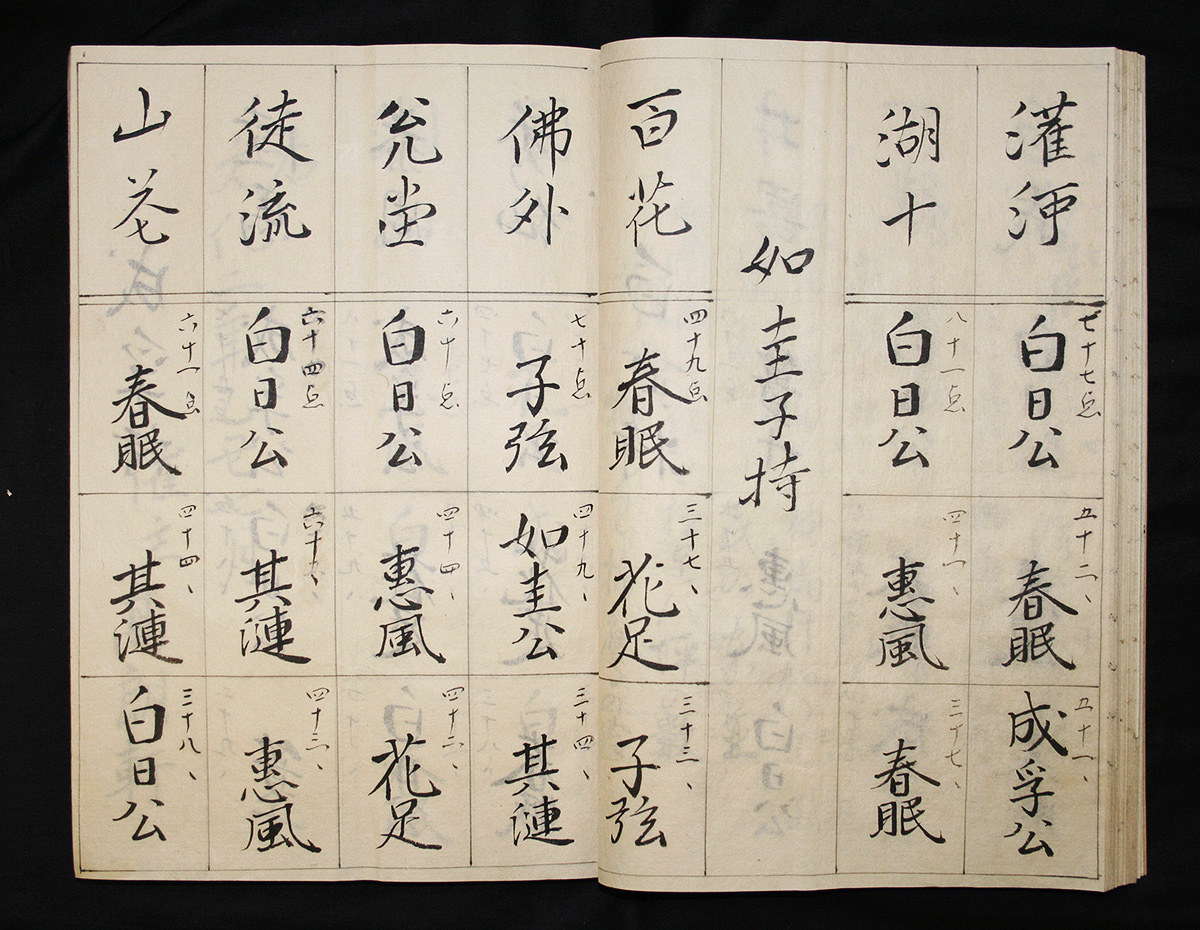 灌河
七十七点
白日公
五十二、
春眠
五十一、
成孚公
湖十
八十一点
白日公
四十一、
惠風
三十七、
春眠
如圭子持
百花
四十九点
春眠
三十七、
花足
三十三、
子弦
佛外
七十点
子弦
四十九、
如圭公
三十四、
其漣
尣堂
六十点
白日公
四十四、
惠風
四十二、
花足
徒流
六十四点
白日公
六十、
其漣
四十三、
惠風
山苍
六十一点
春眠
四十四、
其漣
三十八、
白日公